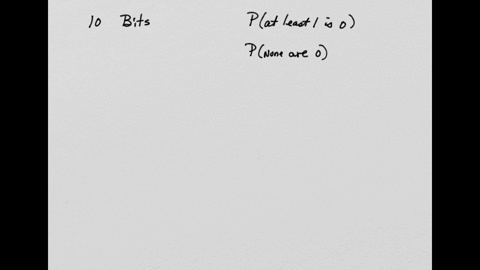 10 Bits P(at least 1 is 0)
P(None are 0)